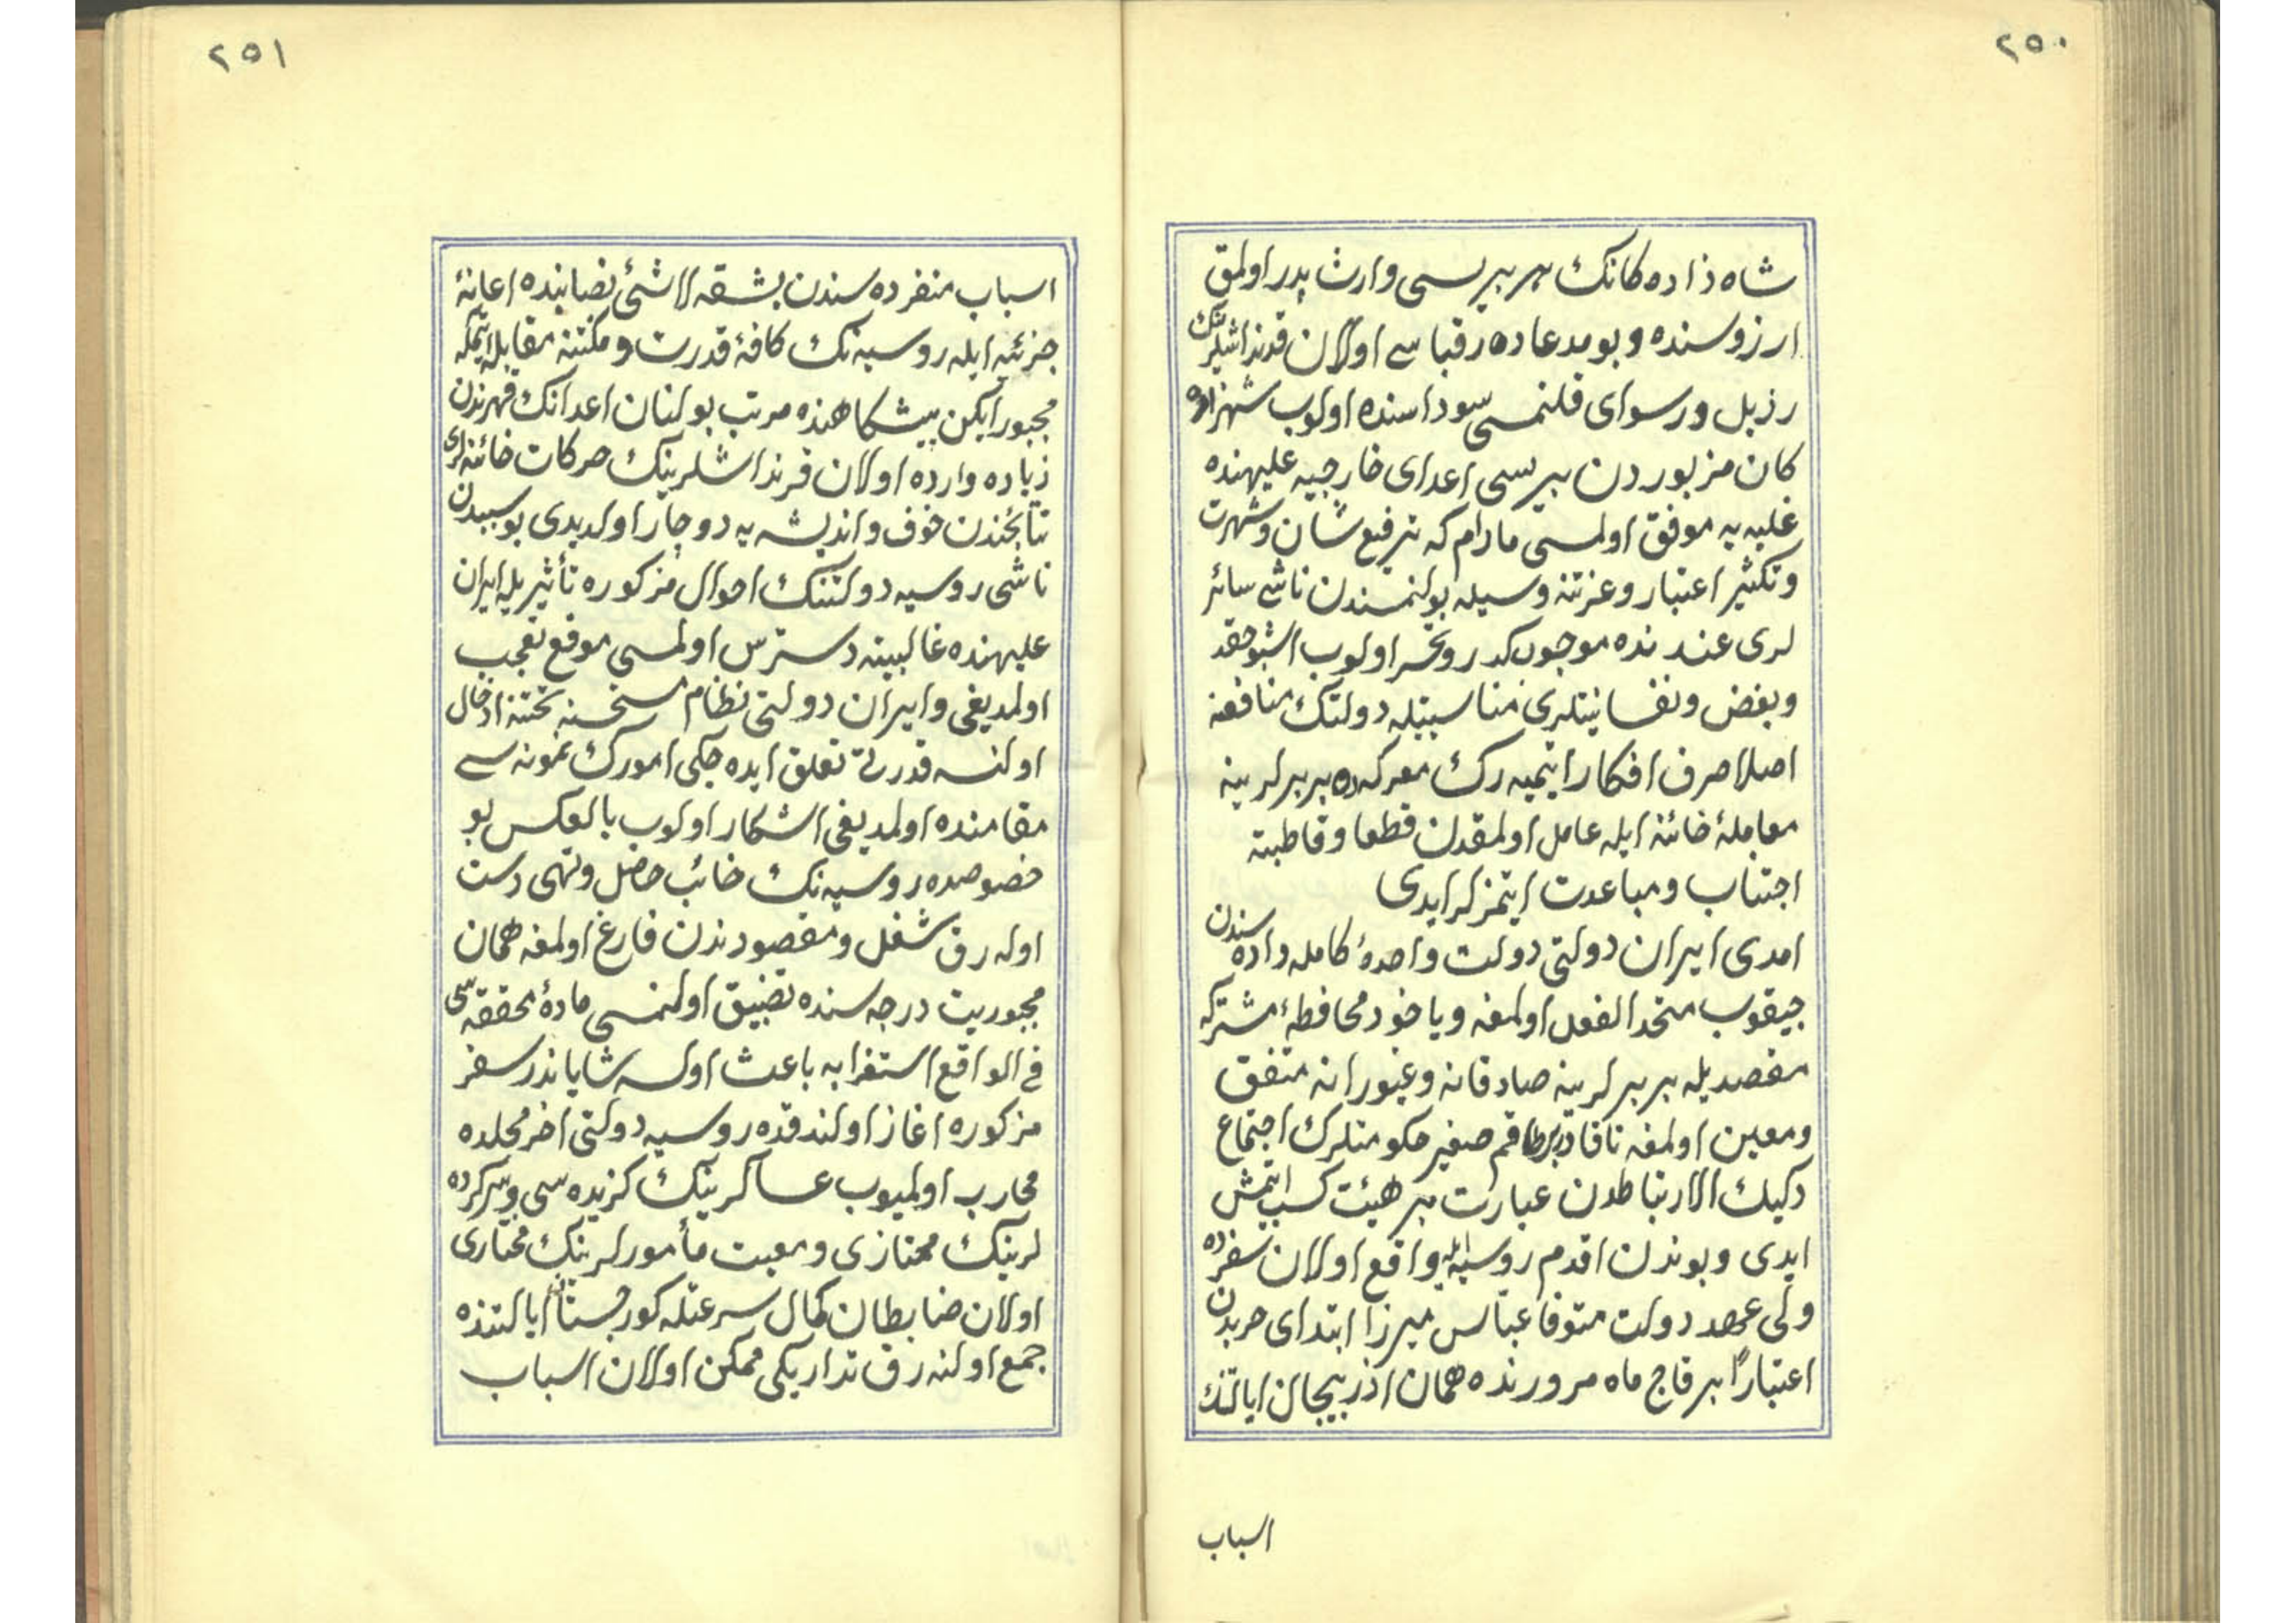 ٢٥٠
شاه ذاده كانك هر بيرىسى وارث پدر اولمق
ارزوسنده و بو مدعاده رقباسى اولان قرنداشلرينك
رذيل و رسواى قلنمسى سوداسنده اولوب شهزاده
كان مزبوردن بيرىسى اعداى خارجيه عليهنده
غلبه يه موفق اولمسى مادام كه ترفيع شان و شهرت
و تكثير اعتبار و عزتنه وسيله بولنمسندن ناشى سائر
لرى عندنده موجب كدر و تحسر اولوب اشبو حقد
و بغض و نفسانيتلرى مناسبتيله دولتك منافعنه
اصلا صرف افكار ايتميه رك معركه ده بربرلرينه
معاملهٔ خائنه ايله عامل اولمقدن قطعا و قاطبة
اجتناب و مباعدت ايتمزلر ايدى
امدى ايران دولتى دولت واحدهٔ كامله داده سندن
چيقوب متحد الفعل اولمغه و ياخود محافظهٔ مشتركه
مقصديله بربرلرينه صادقانه و غيورانه متفق
و معين اولمغه ناقادر برطاقم صغير حكومتلرك اجتماع
ركيك الارتباطدن عبارت بر هيئت كسب ايتمش
ايدى و بوندن اقدم روسيه ايله واقع اولان سفرده
ولى عهد دولت متوفا عباس ميرزا ابتداى حربدن
اعتباراً بر قاچ ماه مرورنده همان اذربيجان ايالتنك
اسباب
٢٥١
اسباب منفرده سندن بشقه لاشئ نصابنده اعانهٔ
جزئيه ايله روسيه نك كافهٔ قدرت و مكنتنه مقابله ايتمكه
مجبور ايكن پيشكاهنده مرتب بولنان اعدانك قهرندن
زياده وارده اولان قرنداشلرينك حركات خائنه لرى
نتايجندن خوف و انديشه يه دوچار اولديدى بو سببدن
ناشى روسيه دولتنك احوال مزكوره تأثيريله ايران
عليهنده غالبيته دسترس اولمسى موقع تعجب
اولمديغى و ايران دولتى نظام مستحسنه تحتنه ادخال
اولنسه قدرتى تعلق ايده جكى امورك نمونه سى
مقامنده اولمديغى اشكار اولوب بالعكس بو
خصوصده روسيه نك خائب حاصل و تهى دست
اوله رق شغل و مقصودندن فارغ اولمغه همان
مجبوريت درجه سنده تضييق اولنمسى مادهٔ محققه سى
فى الواقع استغرابه باعث اولسه شاياندر سفر
مزكوره اغاز اولندقده روسيه دولتى اخر محلده
محارب اولميوب عساكرينك كزيده سى و سركرده
لرينك ممتازى و معيت مأمورلرينك مختارى
اولان ضابطان كمال سرعتله كورجستان ايالتنده
جمع اولنه رق تداريكى ممكن اولان اسباب